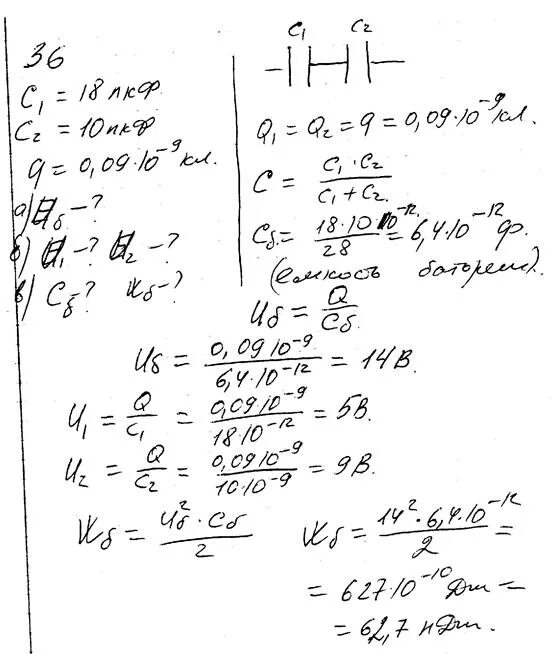 36
C₁ = 18 пкф.
C₂ = 10 пкф
q = 0,09·10⁻⁹ кл.
а) U_б – ?
б) U₁ – ? U₂ – ?
в) C_б ? W_б – ?
C₁ C₂
Q₁ = Q₂ = q = 0,09·10⁻⁹ кл.
C = C₁·C₂ / C₁+C₂.
C_б. = 18·10 10⁻¹² / 28 = 6,4·10⁻¹² ф.
(емкость батареи).
U_б = Q / C_б.
U_б = 0,09 10⁻⁹ / 6,4·10⁻¹² = 14 В.
U₁ = Q / C₁ = 0,09 10⁻⁹ / 18·10⁻¹² = 5В.
U₂ = Q / C₂ = 0,09 10⁻⁹ / 10·10⁻⁹ = 9 В.
W_б = U_б²·C_б / 2
W_б = 14²·6,4·10⁻¹² / 2 =
= 627·10⁻¹⁰ Дж =
= 62,7 нДж.